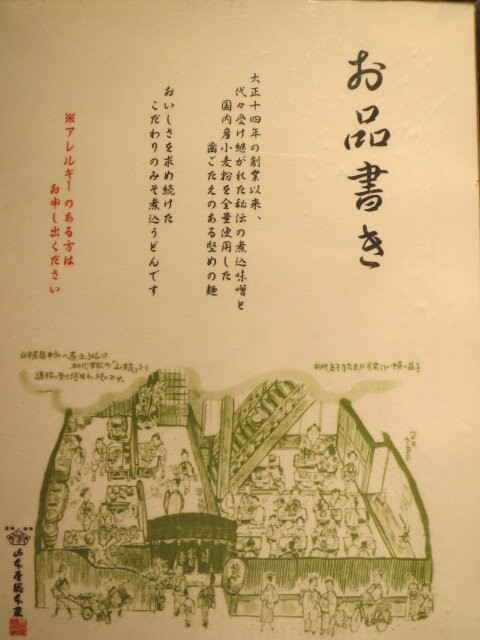 お品書き
大正十四年の創業以来、
代々受け継がれた秘伝の煮込味噌と
国内産小麦粉を全量使用した
歯ごたえのある堅めの麺
おいしさを求め続けた
こだわりのみそ煮込うどんです
※アレルギーのある方は
お申し出ください
山本屋総本家